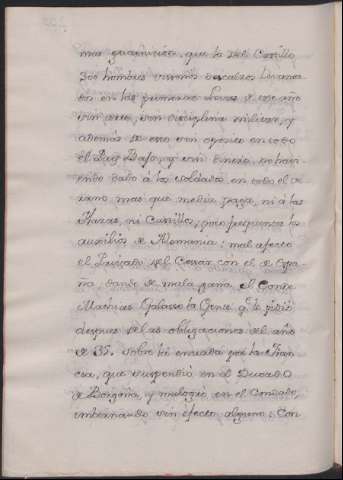 mas guarnicion, que la del Castillo
300 hombres visoños descalzos levanta-
dos en las primeras Levas de ese año
sin arte, sin disciplina militar, y
además de esto sin oposicion en todo
el Pais Bajo, y sin dinero, no havi-
endo dado á los soldados en todo el ve-
rano mas que media paga, ni á las
Plazas, ni Castillos; poco frequentes los
auxilios de Alemania: mal afecto
el Palatino del Cesar con el de Espa-
ña, dando de mala gana el Conde
Mathias Galasso la Gente qe. le pidió
despues de las obligaciones del año
de 35. sobre la enviada por la Fran-
cia, que suspendió en el Ducado
de Borgoña, y malogró en el Condado,
internando sin efecto alguno: Con